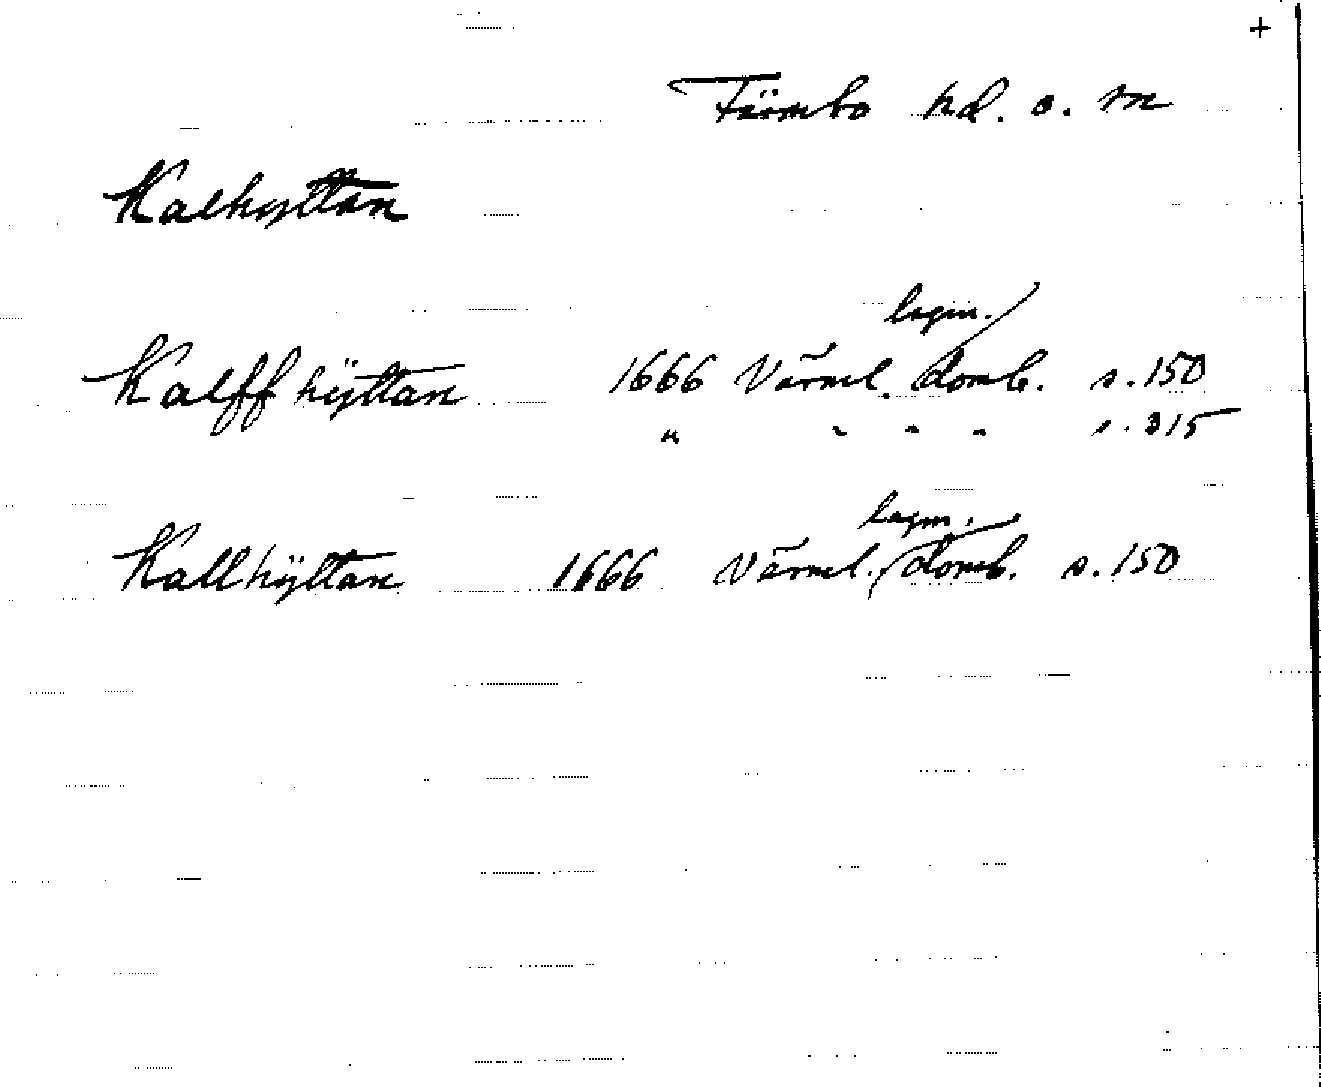 +
Färnebo hd. o. sn
Kalhyttan
lagm.
Kalffhÿttan 1666 Värml. domb. s. 150
" " " " s. 315
lagm.
Kallhÿttan 1666 Värml. domb. s. 150